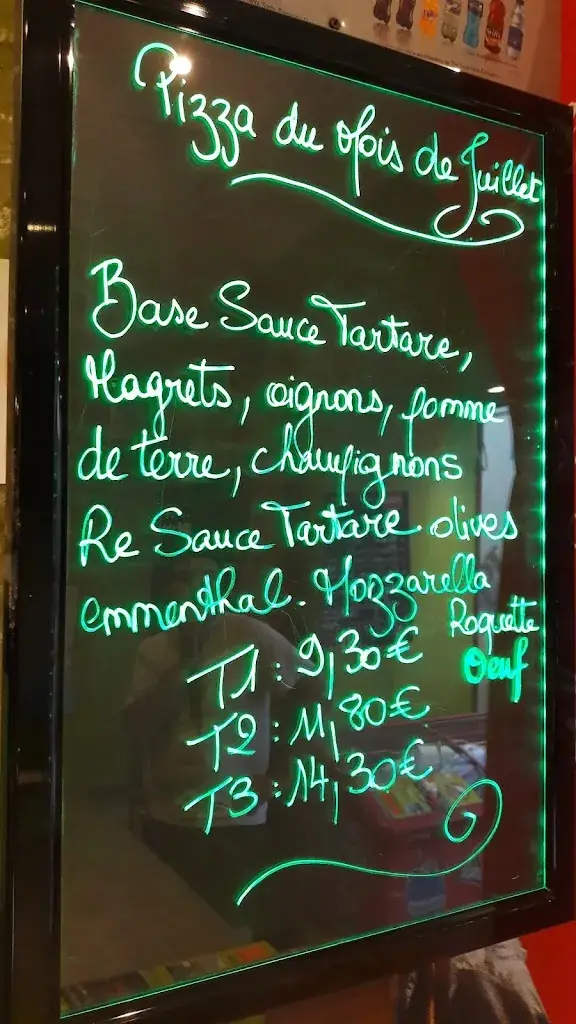 Pizza du Mois de Juillet
Base Sauce Tartare,
Magrets, oignons, pomme
de terre, champignons
Re Sauce Tartare olives
emmenthal. Mozzarella
Roquette
Oeuf
T1 : 9,30€
T2 : 11,80€
T3 : 14,30€